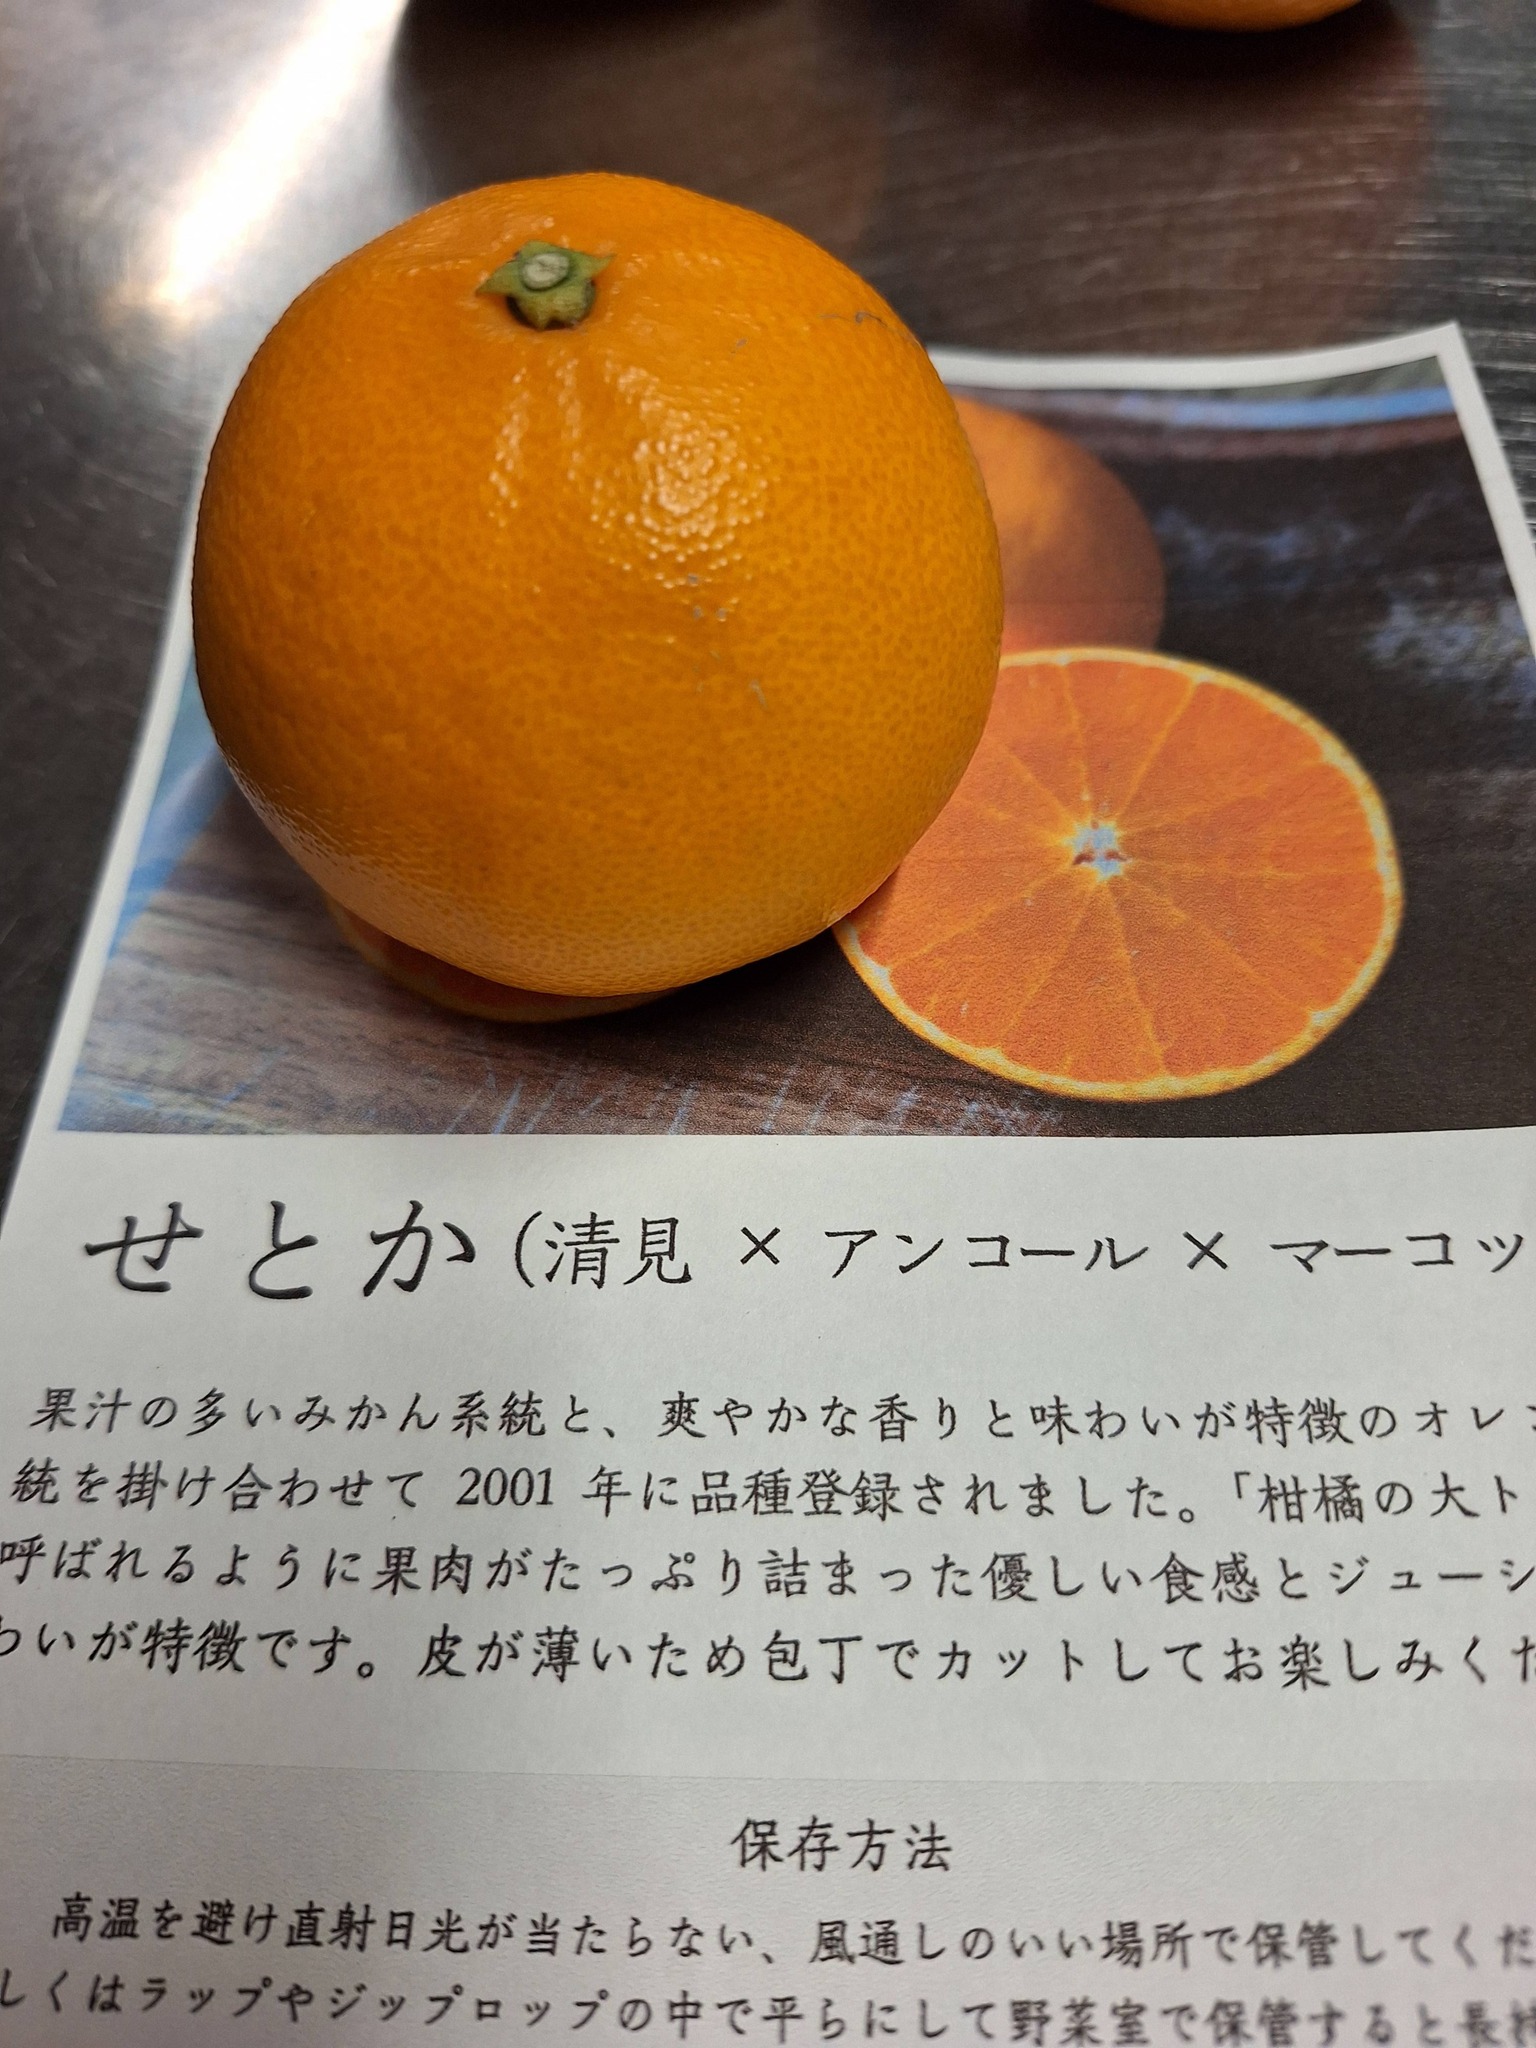 せとか(清見 × アンコール × マーコッ
果汁の多いみかん系統と、爽やかな香りと味わいが特徴のオレン
統を掛け合わせて 2001 年に品種登録されました。「柑橘の大ト
呼ばれるように果肉がたっぷり詰まった優しい食感とジューシ
わいが特徴です。皮が薄いため包丁でカットしてお楽しみくだ
保存方法
高温を避け直射日光が当たらない、風通しのいい場所で保管してくだ
しくはラップやジップロップの中で平らにして野菜室で保管すると長持